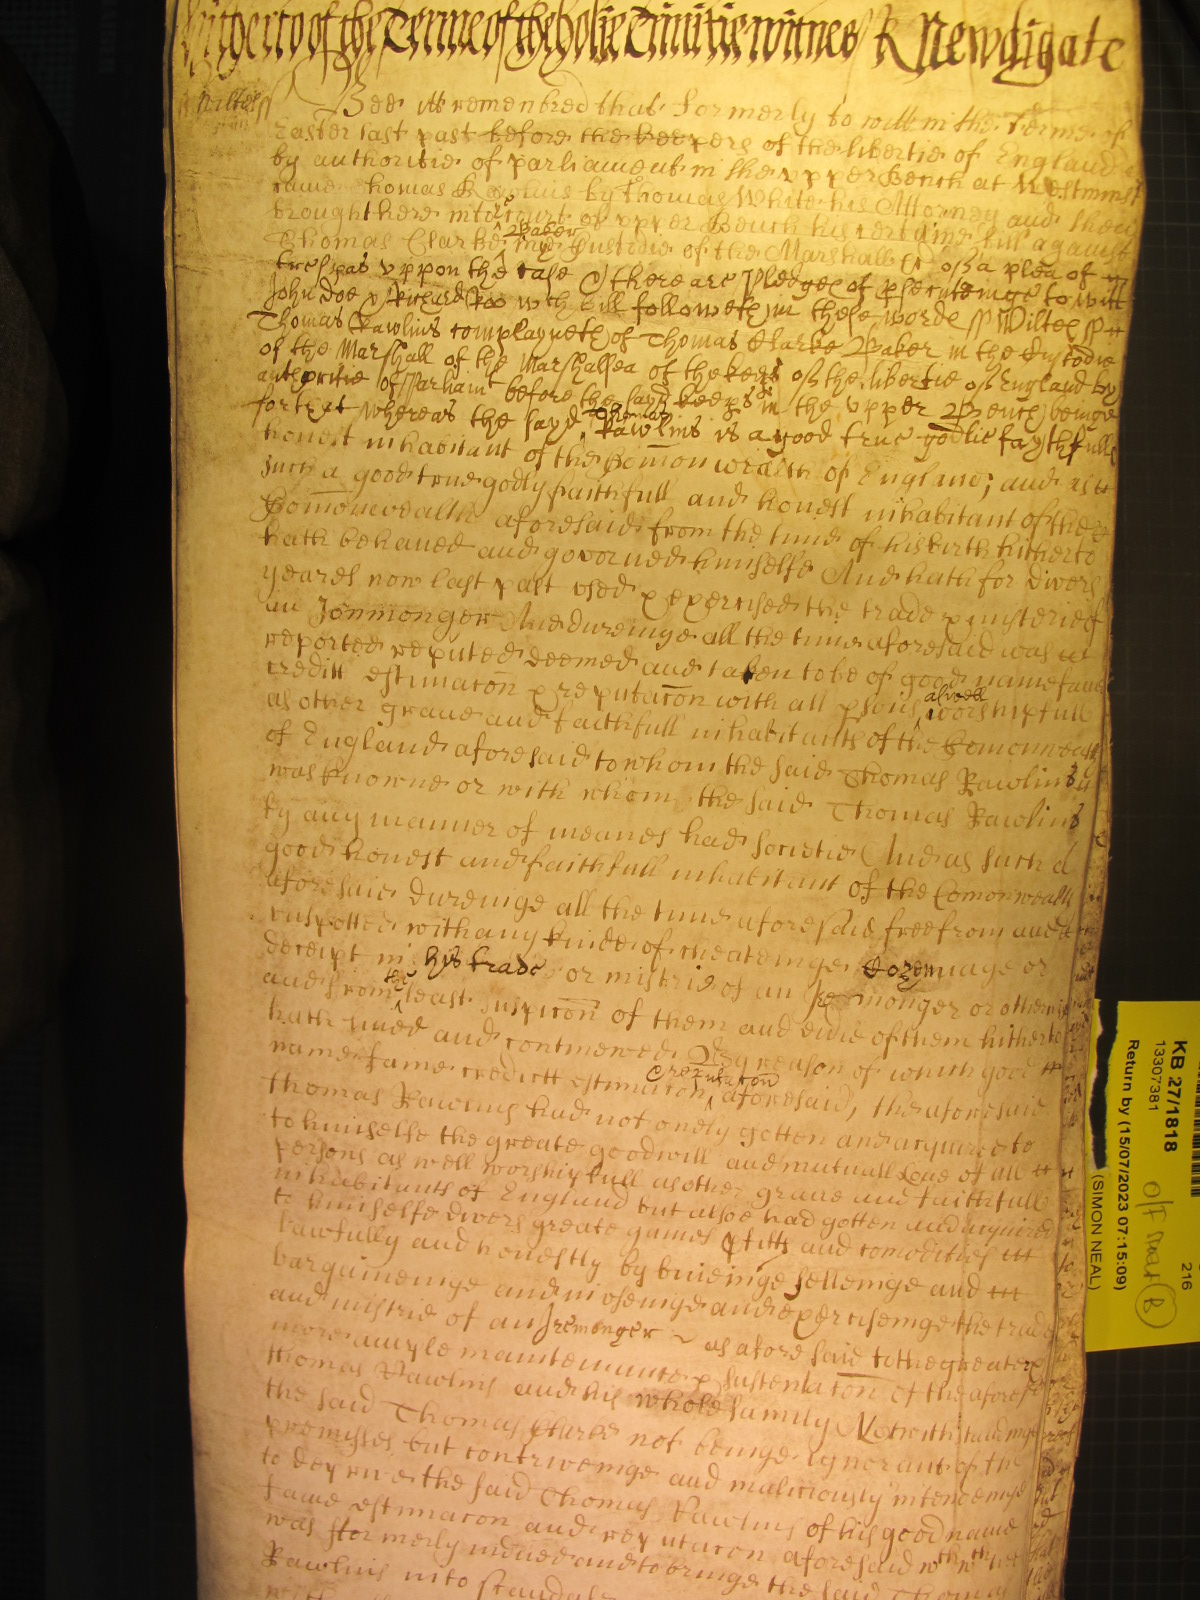 hitherto of the Terme of the holie Trinitie witnes R Newdigate
Wiltes ss Bee itt remembred that formerly to witt in the Terme of
Easter last past before the keepers of the libertie of England
by authoritie of parliament in the upper Bench at Westminst
came Thomas Rawlins by Thomas White his Attorney and then
brought here into ye Court of upper Bench his certaine bill against
Thomas Clarke Baker in ye Custodie of the Marshall &c of a plea of
trespas uppon the case & there are pledges of psecuteinge to witt
John Doe & Richard Roe wch bill followeth in these words ss Wiltes ss
Thomas Rawlins complayneth of Thomas Clarke Baker in the Custodie
of the Marshall of the Marshalsea of the keeps of the libertie of England by
authoritie of Parliamt before the sayd keeps in the upper Bench beinge
for that whereas the sayd Thomas Rawlins is a good true godlie faythfull
honest inhabitant of the Comon wealth of England; and as
such a good true godly faithfull and honest inhabitant of the
Comonwealth aforesaid from the time of his birth hitherto
hath behaved and governed himselfe And hath for divers
yeares now last past used & exercised the trade & misterie of
an Ironmonger And dureinge all the time aforesaid was
reported reputed deemed and taken to be of good name fame
creditt estimacon & reputacon with all psons aswell worshipfull
as other grave and faithfull inhabitants of the Comonwealth
of England aforesaid to whom the said Thomas Rawlins
was knowne or with whom the said Thomas Rawlins
by any manner of meanes had societie And as such a
good honest and faithfull inhabitant of the Comonwealth
aforesaid dureinge all the time aforesaid free from and
unspotted with any kinde of cheateinge Cozenage or
deceipt in his trade or misterie of an Iremonger or otherwise
and from the least suspicon of them and evie of them hitherto
hath lived and contineued By reason of which good
name fame creditt estimacon & reputacon aforesaid, the aforesaid
Thomas Rawlins had not onely gotten and acquired to
to himselfe the greate goodwill and mutuall Love of all
persons as well worshipfull as other grave and faithfull
inhabitants of England but alsoe had gotten and acquired
to himselfe divers greate gaines pfitts and comodities
Lawfully and honestly by buieinge selleinge and
bargaineinge and in useinge and exerciseinge the trade
and mistrie of an Iremonger as aforesaid to the greate &
more ample maintenance & sustentacon of the aforesd
Thomas Rawlins and his whole family Notwithstandinge
the said Thomas Clarke not beinge Ignorant of the
premisses but contriveinge and maliciously intendeinge
to deprive the said Thomas Rawlins of his good name
fame estimacon and reputacon aforesaid wth wch hee
was formerly indued and to bringe the said Thomas
Rawlins into scandale
KB 27/1818
13307381
Return by (15/07/2023 07:15:09)
(SIMON NEAL)
216
B